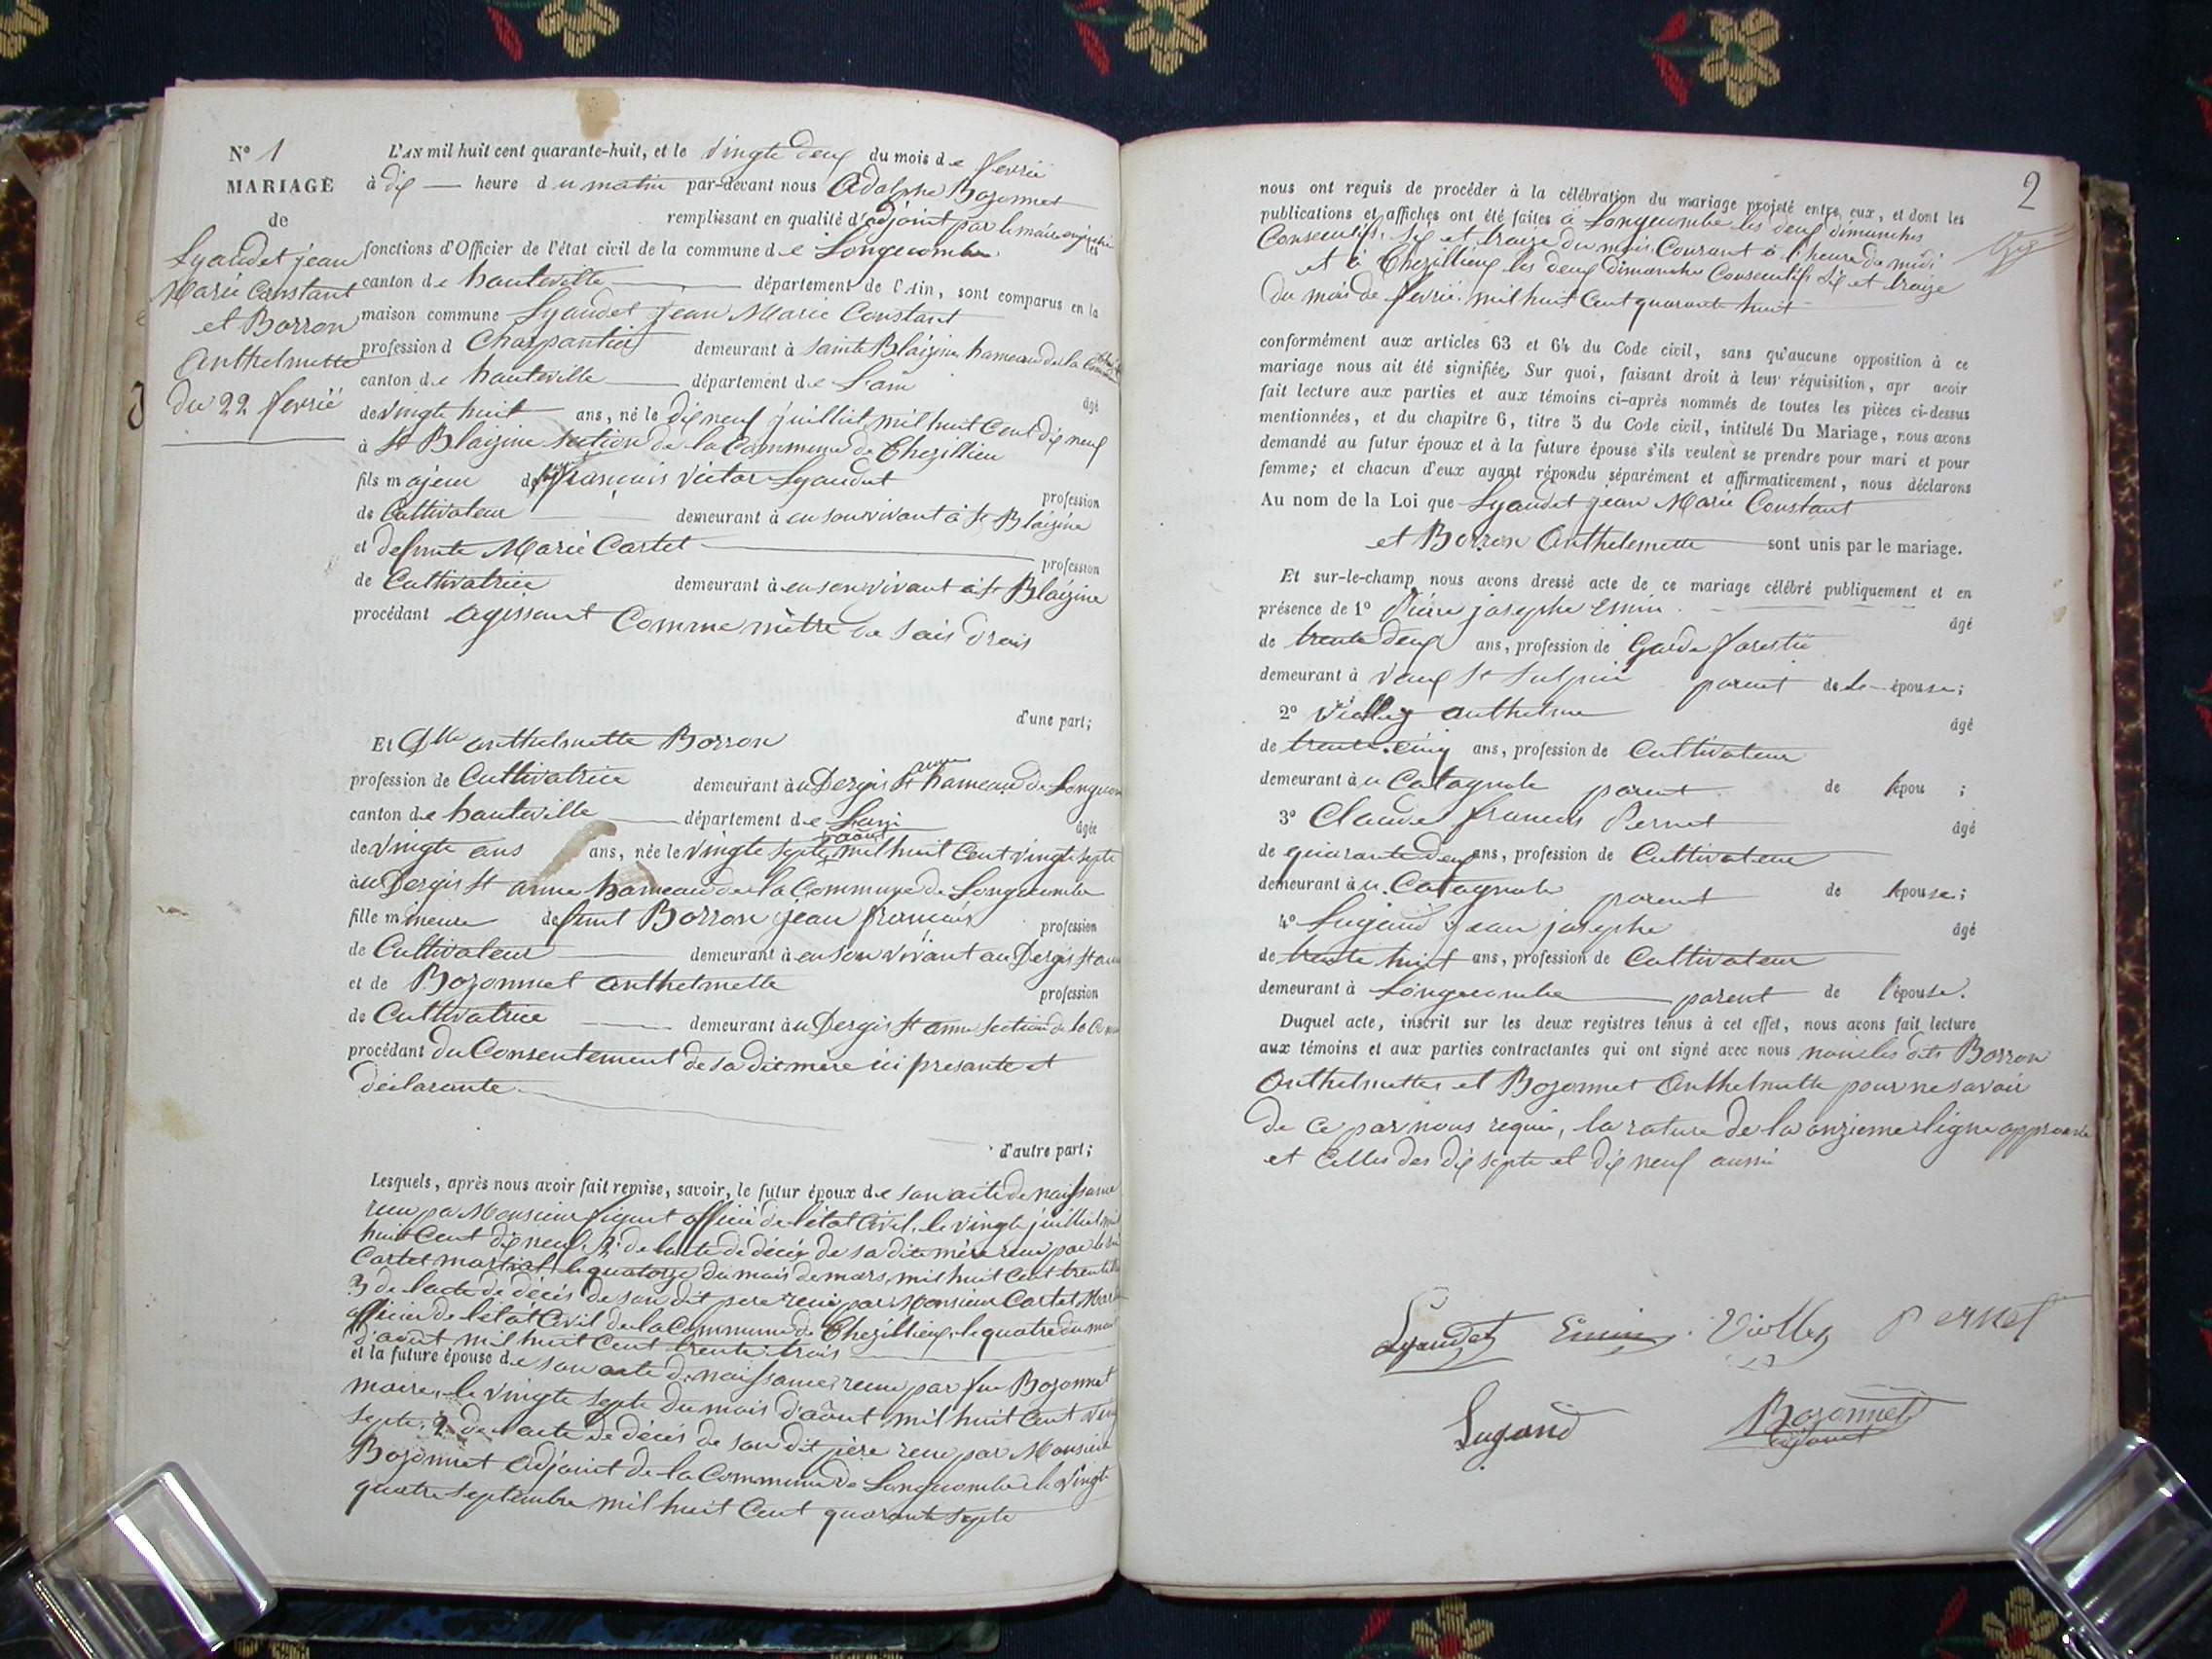 N° 1
MARIAGE
de
Lyaudet jean
Marie Constant
et Borron
Anthelmette
du 22 fevrié
L'AN mil huit cent quarante-huit, et le vingte deux du mois de fevrié
à dix heure du matin par-devant nous Adolphe Bozonnet
remplissant en qualité d'adjoint par le maire les
fonctions d'Officier de l'état civil de la commune de Longecombe
canton de hauteville département de l'Ain, sont comparus en la
maison commune Lyaudet Jean Marie Constant
profession d Charpantier demeurant à Sainte Blaizine hameau de la Commune
canton de hauteville département de L'ain âgé
de vingte huit ans, né le dix neuf juilliet mil huit Cent dix neuf
à St Blaizine section de la Commune de Chezillieu
fils majeur de françois Victor Lyaudet profession
de Cultivateur demeurant à en son vivant à St Blaizine
et defunte Marie Cartet profession
de Cultivatrice demeurant à en son vivant à St Blaizine
procédant agissant Comme mètre de sais drois
d'une part;
Et Dlle anthelmette Borron
profession de Cultivatrice demeurant à u Dergis St anne hameau de Longecom
canton de hauteville département de Lain âgée
de vingte ans ans, née le vingte septe aôut mil huit Cent vingte septe
à u Dergis St anne hameau de la Commune de Longecombe
fille mineure defunt Borron jean françois profession
de Cultivateur demeurant à en son vivant au Dergis St ann
et de Bozonnet anthelmette profession
de Cultivatrice demeurant à u Dergis St anne section de la Com
procédant du Consentement de sa dit mère ici presante et
déclarante
d'autre part;
Lesquels, après nous avoir fait remise, savoir, le futur époux de son acte de naissance
reçu par Monsieur figuet officié de l'état Civil, le vingte juilliet mil
huit Cent dix neuf, 2° de l'acte de décés de sa dite mère reçu par
Cartet martial le quatorze du mois de mars mil huit Cent trente
3 de l'acte de décés de son dit pere reçu par Monsieur Cartet Mar
officier de l'état Civil de la Commune de Chezillieux, le quatre du moi
d'aôut mil huit Cent trente trois
et la future épouse de son acte de naissance reçu par feu Bozonnet
maire, le vingte septe du mois d'aôut mil huit Cent vingt
septe, 2 de l'acte de décés de son dit père reçu par Monsieur
Bozonnet Adjoint de la Commune de Longecombe le vingte
quatre septembre mil huit Cent quarante septe
2
nous ont requis de procéder à la célébration du mariage projeté entre eux, et dont les
publications et affiches ont été faites à Longecombe les deux dimanches
Consecutifs, six et traize du mois Courant à l'heure de midi
et à Chezillieux les deux dimanches Consecutifs six et traize
du mois de fevrié mil huit Cent quarante huit
conformément aux articles 63 et 64 du Code civil, sans qu'aucune opposition à ce
mariage nous ait été signifiée. Sur quoi, faisant droit à leur réquisition, apr avoir
fait lecture aux parties et aux témoins ci-après nommés de toutes les pièces ci-dessus
mentionnées, et du chapitre 6, titre 5 du Code civil, intitulé Du Mariage, nous avons
demandé au futur époux et à la future épouse s'ils veulent se prendre pour mari et pour
femme; et chacun d'eux ayant répondu séparément et affirmativement, nous déclarons
Au nom de la Loi que Lyaudet jean Marie Constant
et Borron Anthelemette sont unis par le mariage.
Et sur-le-champ nous avons dressé acte de ce mariage célébré publiquement et en
présence de 1° Pierre josephe Emin âgé
de trente deux ans, profession de Garde forestié
demeurant à Vaux St Sulpice parent de le épouse;
2° Viallez anthelme âgé
de trente-cinq ans, profession de Cultivateur
demeurant à u Catagnole parent de lépou ;
3° Claude francois Pernet âgé
de quarante deux ans, profession de Cultivateur
demeurant à u Catagnole parent de lépouse;
4° Lugand jean josephe âgé
de trente huit ans, profession de Cultivateur
demeurant à Longecombe parent de l'épouse.
Duquel acte, inscrit sur les deux registres tenus à cet effet, nous avons fait lecture
aux témoins et aux parties contractantes qui ont signé avec nous non les dits Borron
Anthelmettes et Bozonnet Anthelmette pour ne savoir
de ce par nous requis, la rature de la onzieme ligne approuvée
et Celles des dix septe et dix neuf aussi
Lyaudet Emin Viallez Pernet
Lugand Bozonnet
adjoint